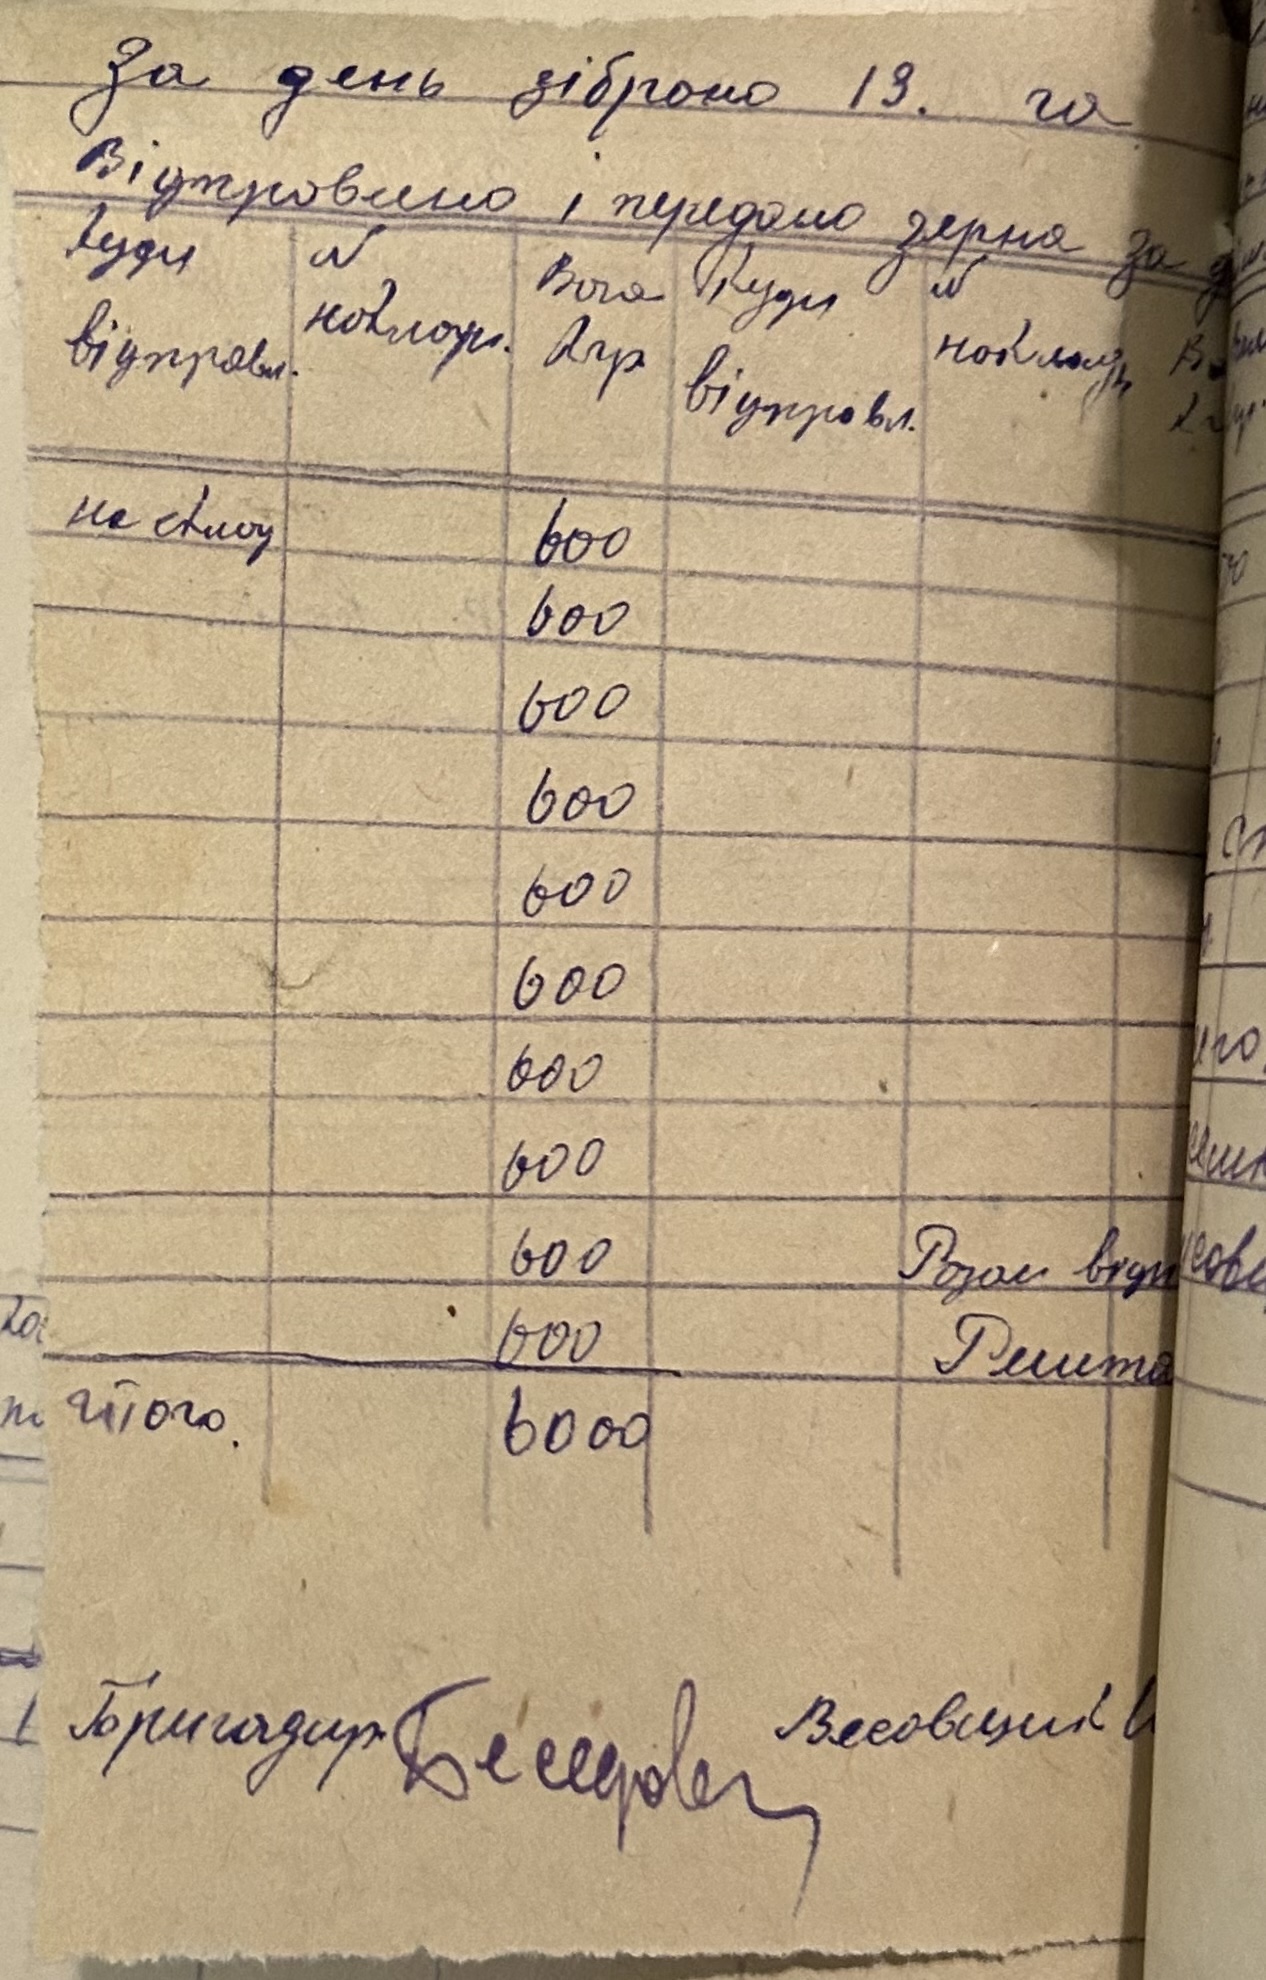 За день зібрано 13. га
Відправлено і передано зерна за
Куди відправл. № накладн. Вага кгр Куди відправл. № накладн
на склад 600
600
600
600
600
600
600
600
600 Разом відп
600 Решта
Итого. 6000
Бригадир Весовщик